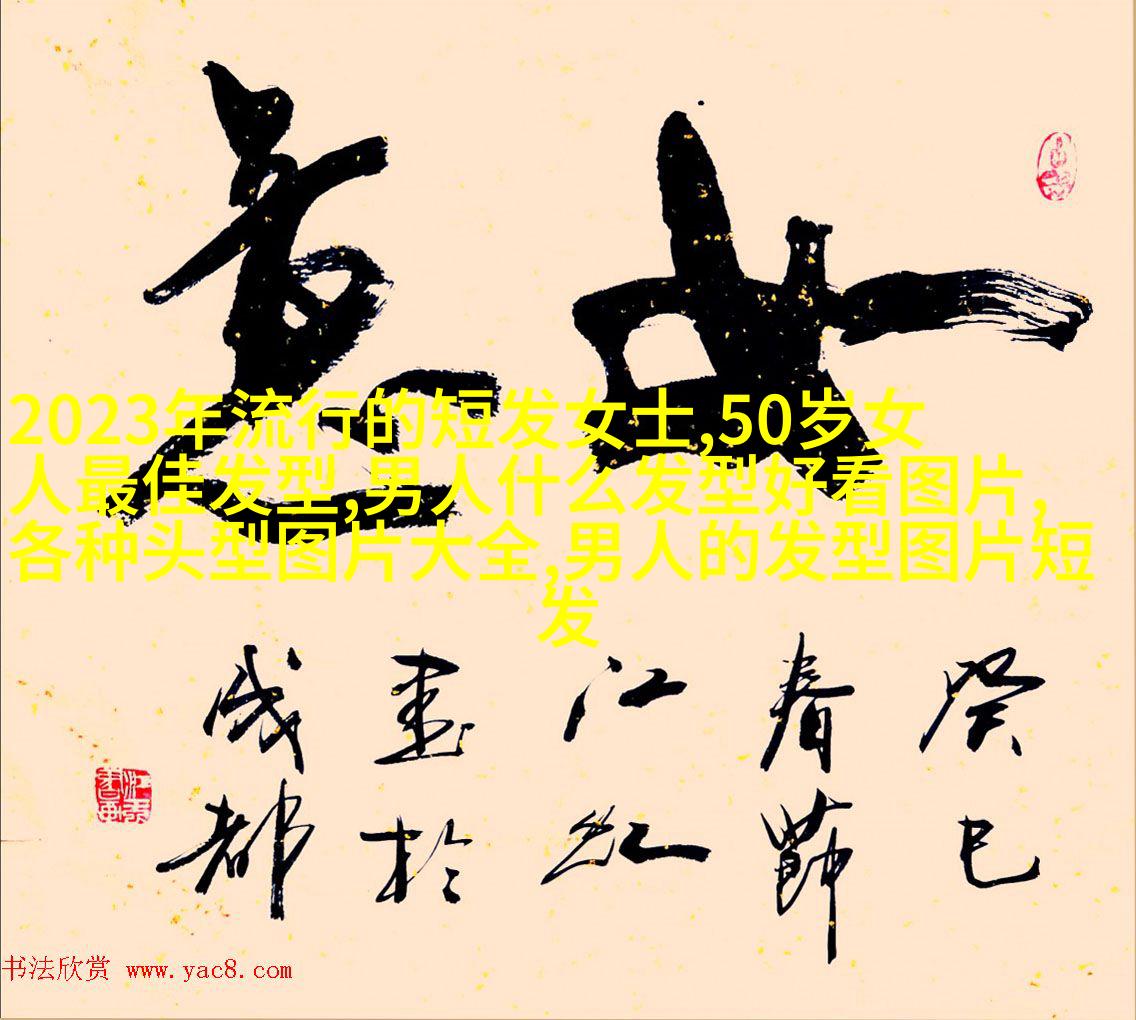 如意
2023年流行的短发女士,50岁女
人最佳发型,男人什么发型好看图片,
各种头型图片大全,男人的发型图片短
发
癸巳
春節
江红
書於
成都
书法欣赏 www.yac8.com